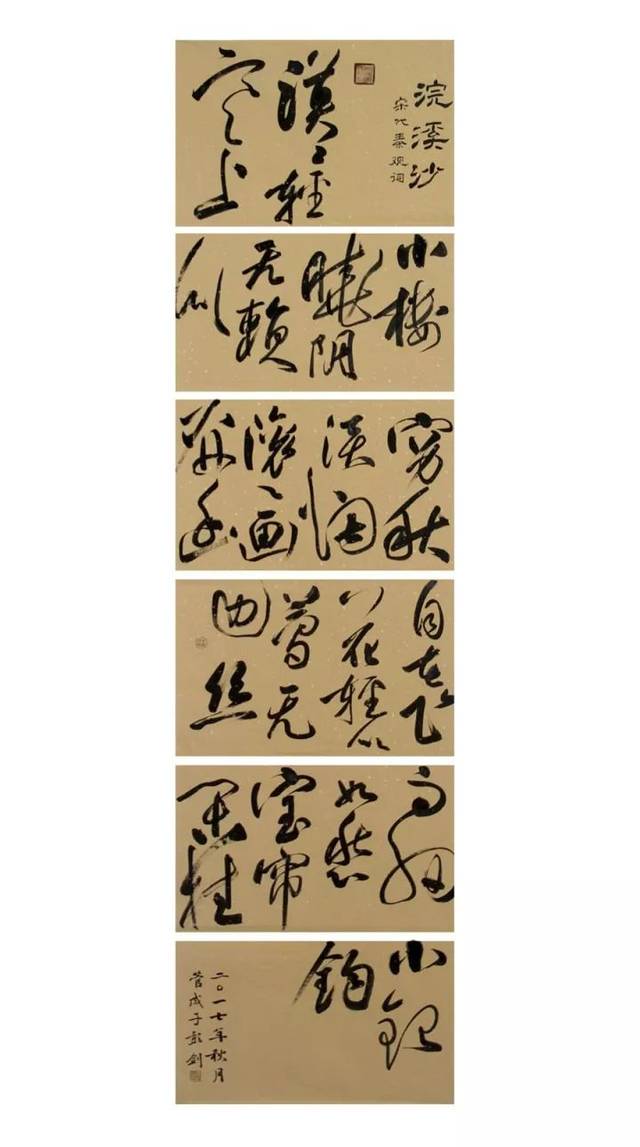 浣溪沙
宋代秦观词
漠漠輕
寒上
小樓
曉阴
无賴
似
窮秋
淡烟
流水画
屏幽
自在飞
花輕似
夢无
边丝
雨细
如愁
宝帘
闲挂
小銀
鈎
二〇一七年秋月
成子彭剑